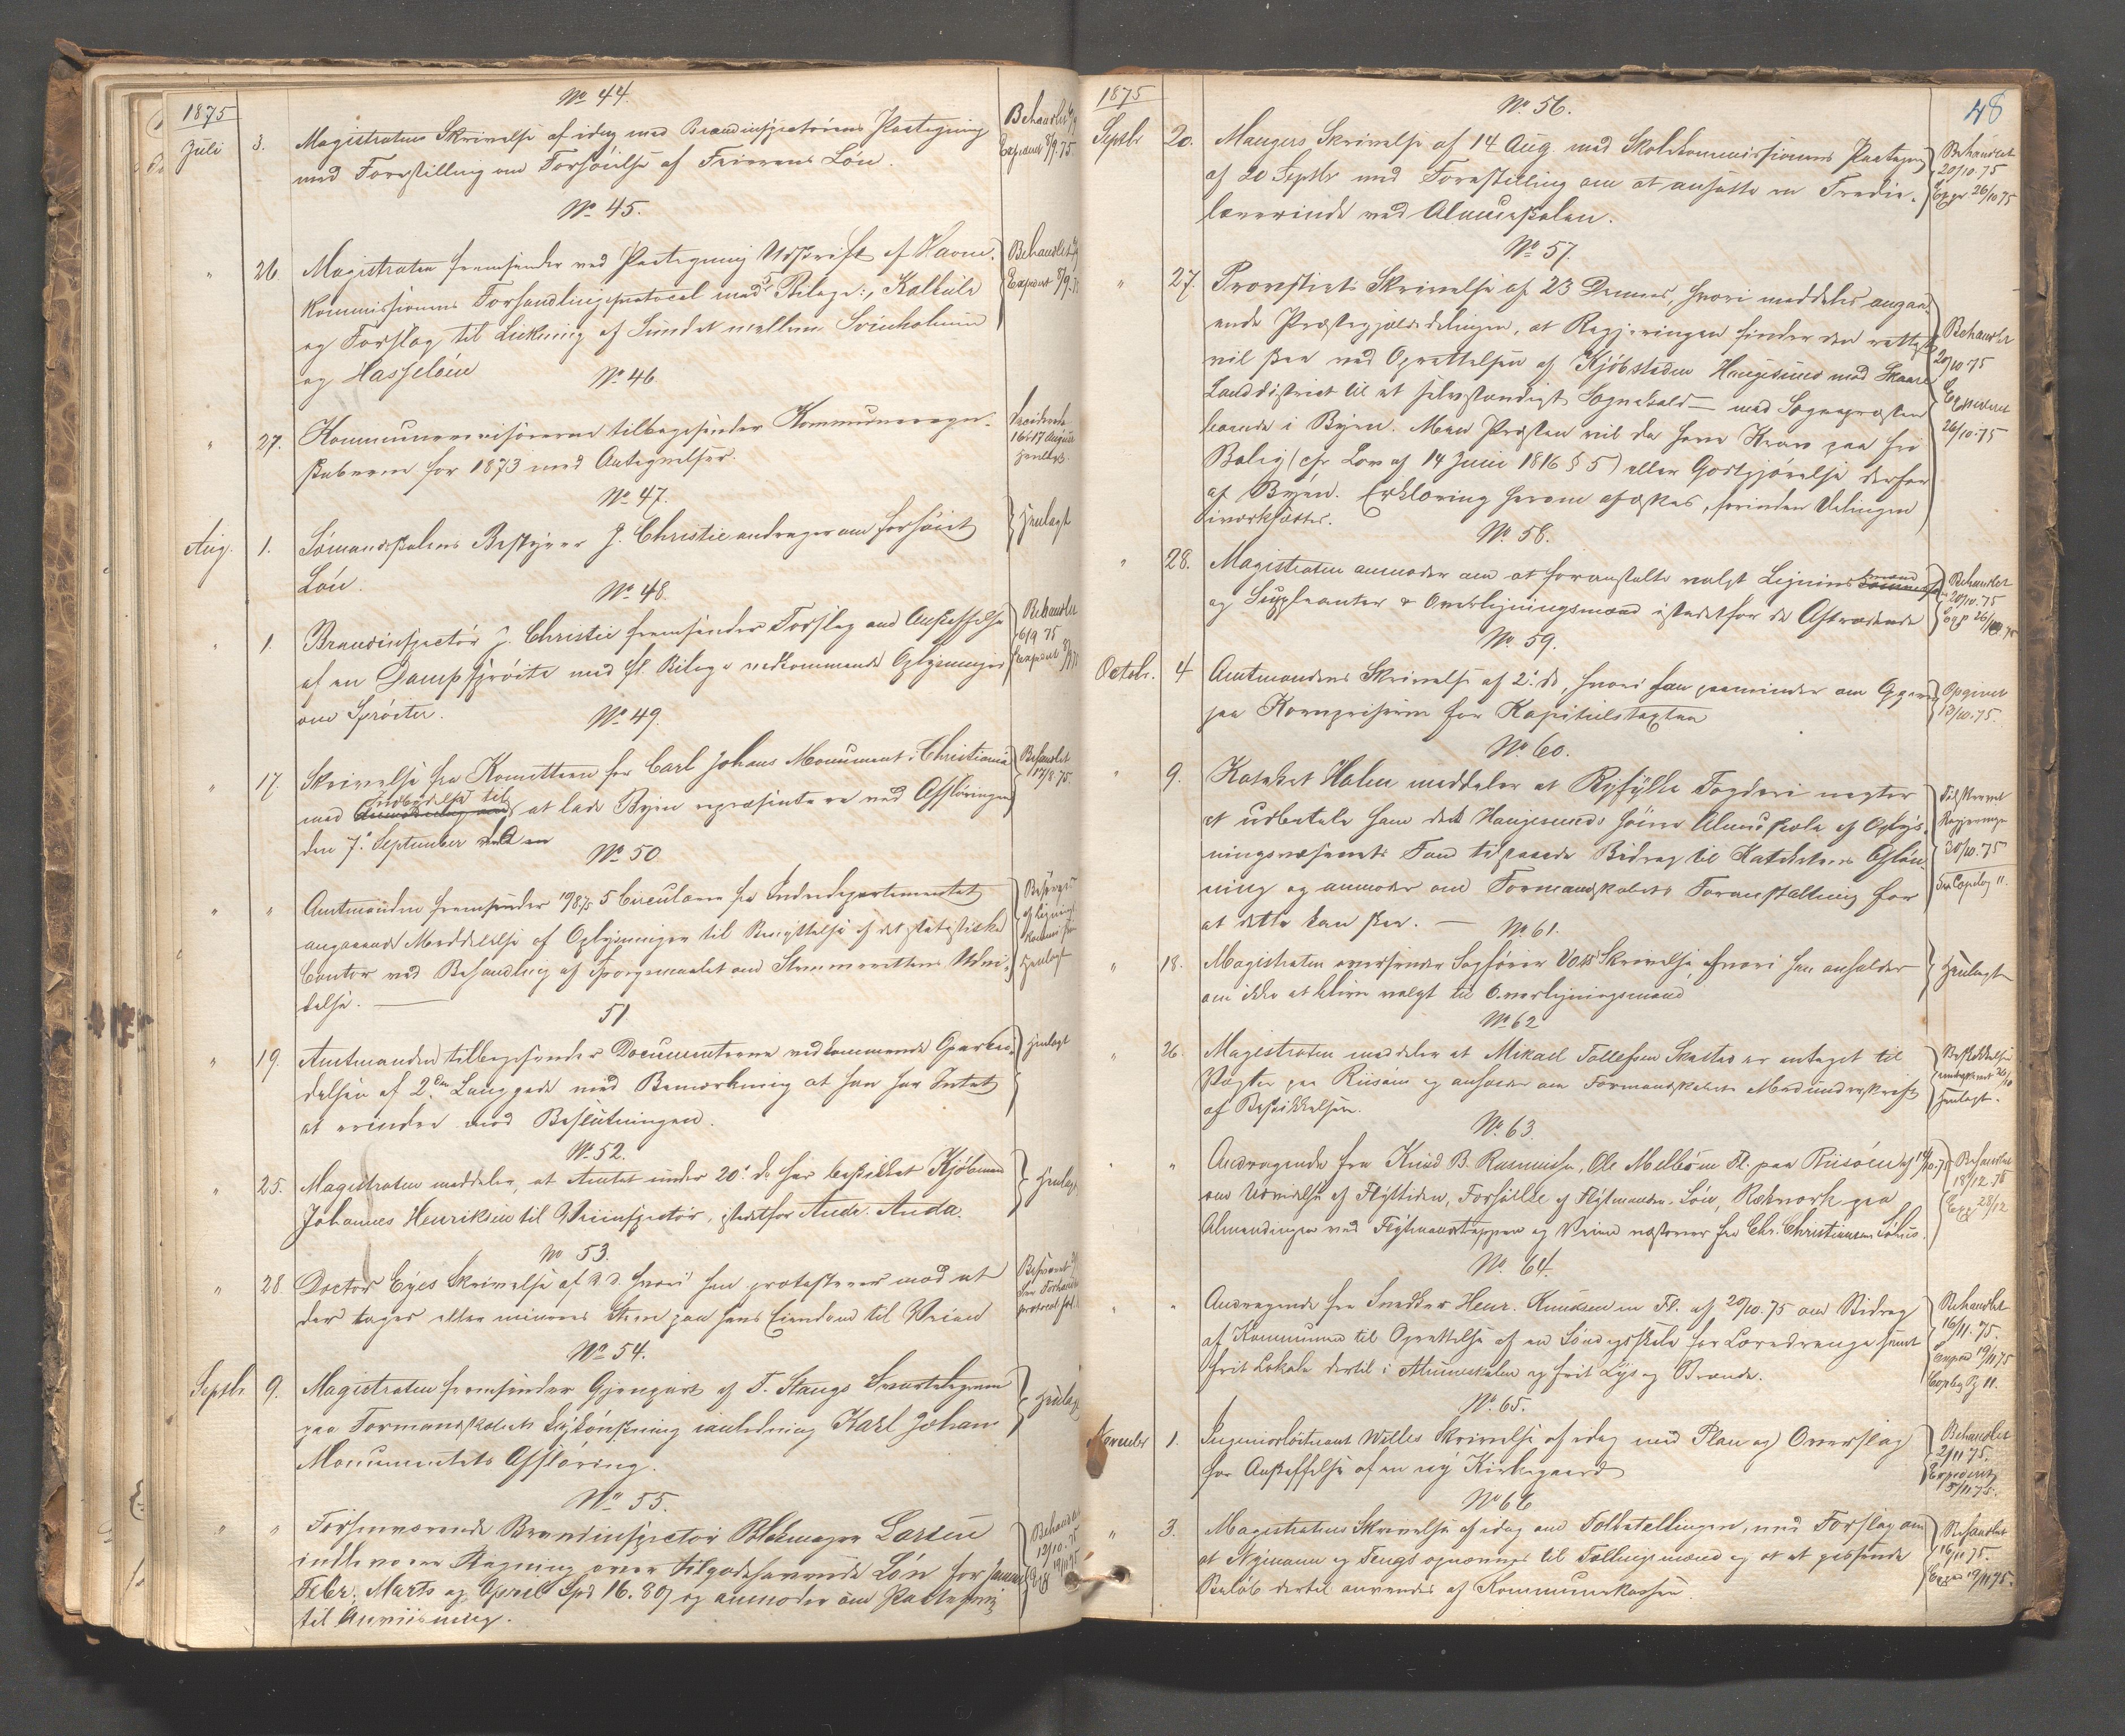 1875
No 44.
Juli 3. Magistratens Skrivelse af idag med Brandinspectörens Paategning
med Forestilling om Forhöielse af Feierens Lön.
Behandlet
Exped 8/9 75.
No 45.
" 26 Magistraten fremsender med Paategning Udskrift af Havne-
kommissionens Forhandlingsprotocol med Bilage: Kalkule
og Forslag til Lukning af Sundet mellem Svineholmen
og Hasselöen
Behandlet
Exped 8/9
No 46
" 27. Kommunerevisorerne tilbagesender Kommuneregn-
skaberne for 1873 med Antegnelser.
Deciderede
16 & 17 August
henlagt.
No 47.
Aug. 1. Sömandsskolens Bestyrer J. Christie andrager om forhöiet
Lön.
Henlagt
No 48.
" 1. Brandinspectör J. Christie fremsender Forslag om Anskaffelse
af en Dampspröite med fl. Bilage vedkommende Oplysninger
om Spröiter.
Behandlet
6/9 75
Exped 8/9 75
No 49.
" 17. Skrivelse fra Komitteen for Carl Johans Monument i Christiania
med Indbydelse til at lade Byen repræsentere ved Afslöringen
den 7de September
Behandlet
17/8 75.
No 50
" " Amtmanden fremsender 10/8 75 5 Circulærer fra Indredepartementet
angaaende Meddelelse af Oplysninger til Benyttelse af det statistiske
Contor ved Behandling af Spörgsmaalet om Stemmerettens Udvi-
delse. —
Henlagt
51
" 19. Amtmanden tilbagesender Documenterne vedkommende Oparbei-
delsen af 2den Langgade med Bemærkning at han har Intet
at erindre mod Beslutningen.
Henlagt
No 52.
" 25. Magistraten meddeler, at Amtet under 20. ds har beskikket Kjöbmand
Johannes Henriksen til Veiinspectör, istedetfor Andr. Anda.
Henlagt
No 53.
" 28 Doctor Eyes Skrivelse af d. d. hvori han protesterer mod at
der tages eller mineres Steen paa hans Eiendom til Veien
Besvaret
No 54.
Septbr 9. Magistraten fremsender Gjenpart af T. Stangs Svartelegram
paa Formandskabets Lykönskning i anledning Karl Johans
Monumentets Afslöring.
Henlagt
No 55.
" " Forhenværende Brandinspectör Blokmager Larsen
indleverer Regning over tilgodehavende Lön for Januar
Febr. Marts og April Spd 16. 80 og anmoder om Paategning
til Anviisning.
Behandlet
12/10. 75
1875
48
No 56.
Septbr 20. Maugers Skrivelse af 14 Aug. med Skolekommissionens Paategning
af 20 Septbr med Forestilling om at ansætte en Tredie-
lærerinde ved Almueskolen.
Behandlet
20/10. 75
Exp 26/10 75
No 57.
" 27. Provstiets Skrivelse af 23 Dennes, hvori meddeles angaa-
ende Præstegjældsdelingen, at Regjeringen finder den rettest
vil ske ved Oprettelsen af Kjöbstaden Haugesund med Skaare
Landdistrict til et selvstændigt Sognekald — med Sognepræsten
boende i Byen. Men Præsten vil da have Krav paa fri
Bolig (cfr Lov af 14 Juni 1816 § 5) eller Godtgjörelse derfor
af Byen. Erklæring herom afæskes, forinden Delingen
iværksættes.
Behandlet
20/10 75
Expederet
26/10. 75
No 58.
" 28. Magistraten anmoder om at foranstalte valgt Ligningsmænd
og Suppleanter & Overligningsmænd istedetfor de Aftrædende
Behandlet
20/10. 75
Exp 26/10 75
No 59.
Octobr. 4 Amtmandens Skrivelse af 2. ds, hvori han paaminder om Opgaver
paa Kornpriserne for Kapitelstaxten
Opgivet
13/10. 75.
No 60.
" 9. Katechet Holm meddeler at Ryfylke Fogderi negter
at udbetale ham det Haugesunds höiere Almueskole af Oplys-
ningsvæsenets Fond tilstaaede Bidrag til Katechetens Aflön-
ning og anmoder om Formandskabets Foranstaltning for
at dette kan ske. —
Tilskrevet
Regjeringen
30/10. 75
No 61.
" 18. Magistraten oversender Sagförer Voss Skrivelse, hvori han anholder
om ikke at blive valgt til Overligningsmand
Henlagt
No 62
" 26. Magistraten meddeler at Mikael Tollefsen Skaftes er antaget til
Vægter paa Risöen og anholder om Formandskabets Medunderskrift
af Beskikkelsen.
Beskikkelsen
underskrevet 26/10
Henlagt.
No 63.
" " Andragende fra Knud B. Rasmussen, Ole Melbøm Fl. paa Risöen af 19/10. 75
om Udvidelse af Flyttiden, Forhöielse af Flytmandens Lön, Rækværk paa
Almendingen ved Flytmandstrappen og Veien vestover fra Chr. Christiansens Söhus.
Behandlet
18/12. 75
Exp 28/12
No 64.
" " Andragende fra Snedker Henr. Knudsen m Fl. af 20/10. 75 om Bidrag
af Kommunen til Oprettelse af en Söndagsskole for Læredrenge samt
frit Lokale dertil i Almueskolen og frit Lys og Brænde.
Behandlet
16/11. 75.
Exped 19/11 75
Copibog Pg 11.
No 65.
November 1. Ingeniörlöitnant Willes Skrivelse af idag med Plan og Overslag
for Anskaffelse af en ny Kirkegaard
Behandlet
2/11 75.
Expederet
5/11 75.
No 66
" 3. Magistratens Skrivelse af idag om Folketellingen, med Forslag om
at Nymann og Fengs opnævnes til Tællingsmænd og at et passende
Belöb dertil anvendes af Kommunekassen.
Behandlet
16/11 75.
Exped 19/11 75.